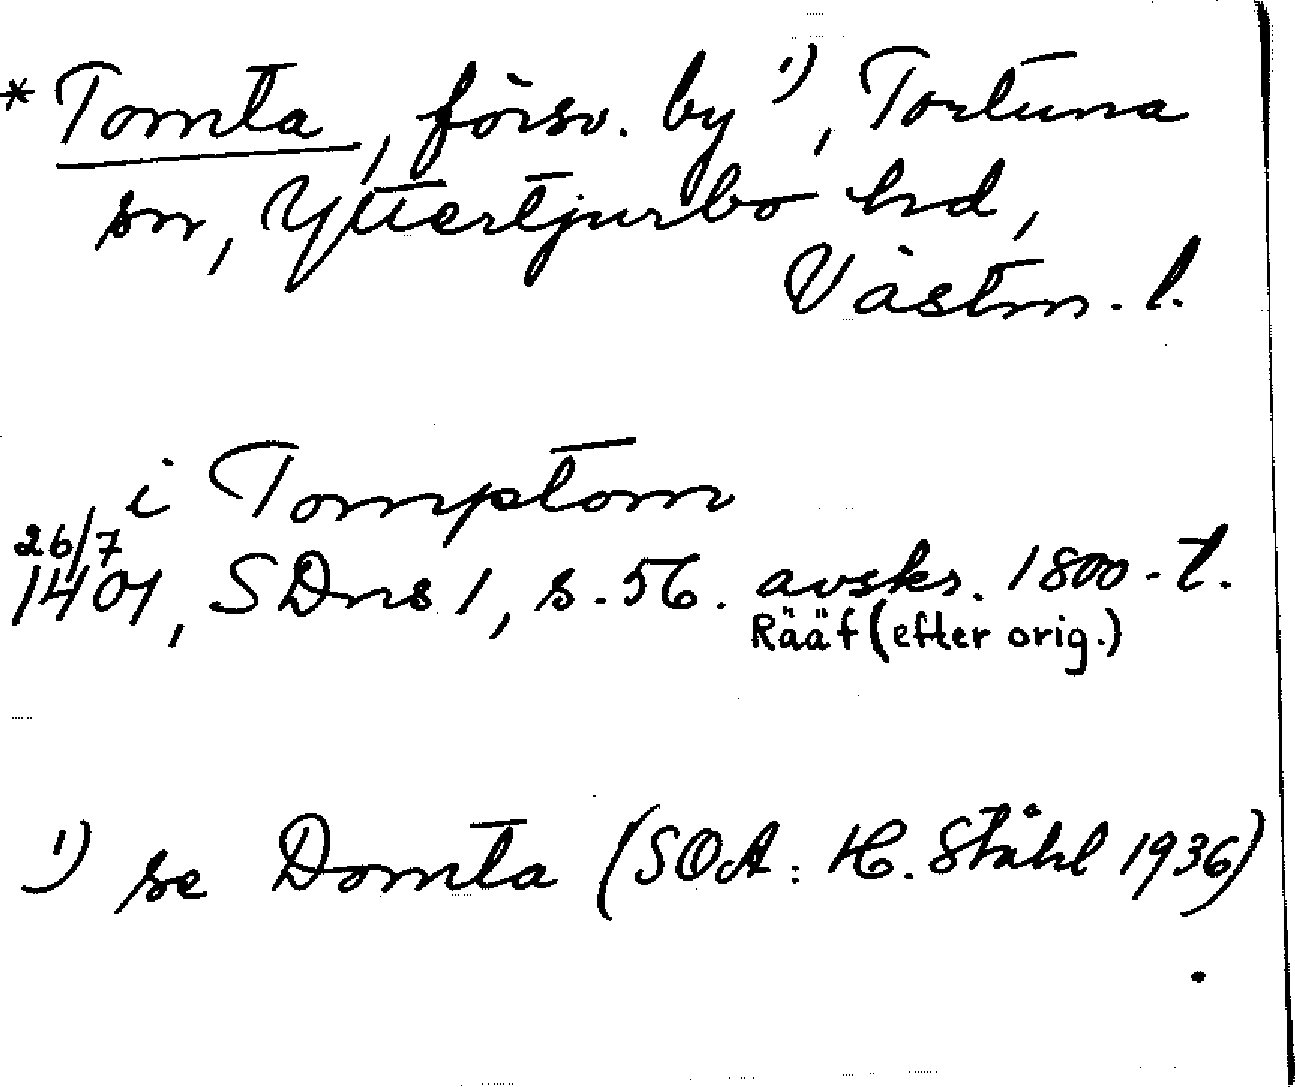 *Tomta, försv. by ¹), Tortuna
sn, Yttertjurbo hd,
Västm. l.
i Tomptom
26/7
1401, SDns 1, s. 56. avskr. 1800-t.
Rääf (efter orig.)
¹) se Domta (SOA: H. Ståhl 1936)